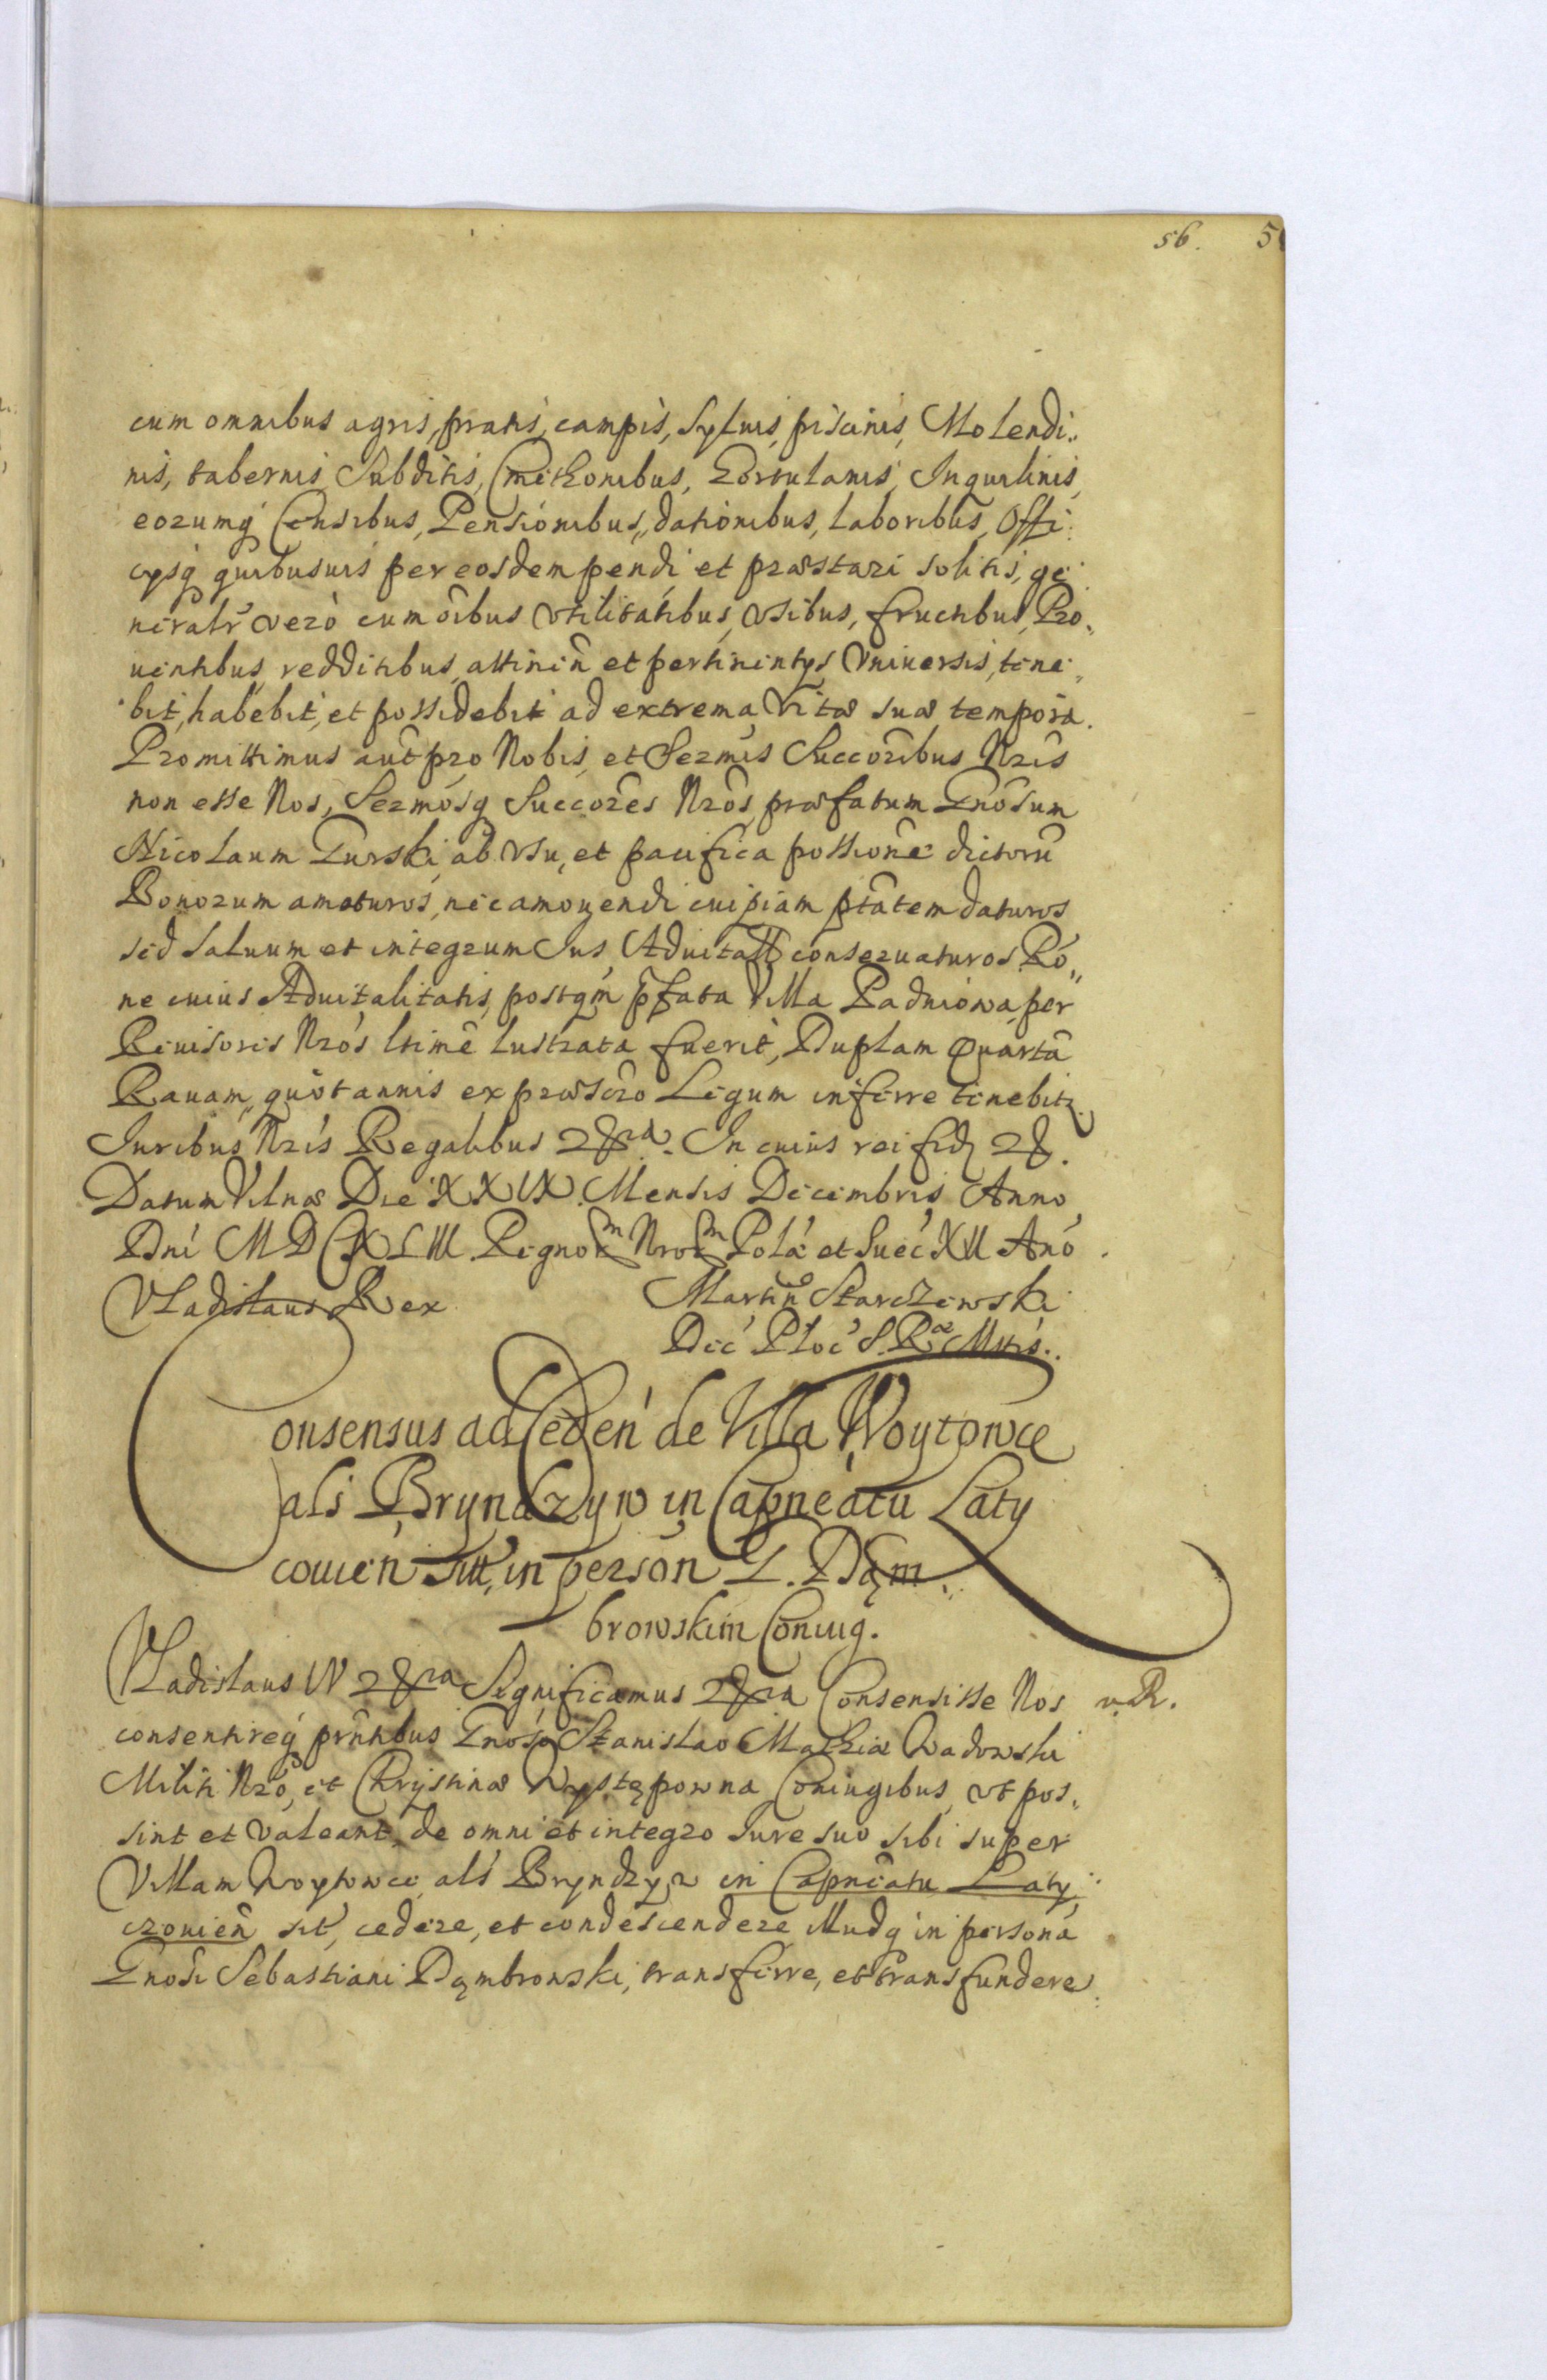 56. 5
cum omnibus agris, pratis, campis, Syluis, piscinis, Molendi„
nis, tabernis Subditis, Cmethonibus, Hortulanis, Inquilinis,
eorumq́ Censibus, Pensionibus, dationibus, laboribus, Offi:
cysq́ quibusuis per eosdem pendi et præstari solitis, ge
neralr̃ verò cum õibus Vtilitatibus, Vsibus, fructibus, Pro„
uentibus, redditibus, attineñ et pertinentys Vniuersis, tene„
bit, habebit, et possidebit ad extrema Vitæ suæ tempora.
Promittimus aut̃ pro Nobis, et Sermis Succoribus Nris
non esse Nos, Sermosq́ Succores Nros, præfatum Gnosum
Nicolaum Turski, ab Vsu, et pacifica possione dictorũ
Bonorum amoturos, nec amouendi cuipiam ptãtem daturos
sed saluum et integrum Ius Aduitale conseruaturos. Ró„
ne cuius Aduitalitatis, postqm̃ p̃fata Villa Padniowa, per
Reuisores Nros ltime lustrata fuerit, Duplam Quartã
Rauam, quotannis ex præscro Legum inferre tenebitr.
Iuribus Nris Regalibus &ra. In cuius rei fid &.
Datum Vilnæ Die XXIX. Mensis Decembris, Anno
Dni MDCXLIII Regnorm Nrorm Polæ et Sueć XII Ano.
Vladislaus Rex Martin9 Starczewski
Deć Ploć S. Ræ Mtis.
Consensus ad Cedeń de Villa Woytowce
als Bryndzyw in Capneatu Laty
couień sitt, in person G. Dąm„
browskim Coniug.
Vladislaus IV &ra Significamus &ra Consensisse Nos v. R.
consentireq́ prñtibus Gnoso Stanislao Mathiæ Wadowski
Militi Nro, et Chrystinæ Występowna Coniugibus, vt pos„
sint et valeant, de omni et integro Iure suo sibi super
Villam Woytowce, als Bryndzyw in Capneatu Laty„
czouień sit, cedere, et condescendere, illudq́ in personã
Gnosi Sebastiani Dąmbrowski, transferre, et transfundere